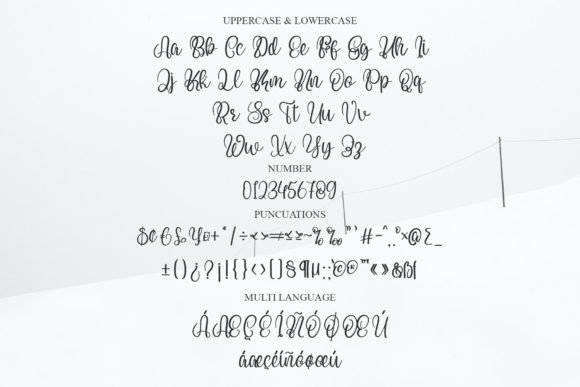 UPPERCASE & LOWERCASE
Aa Bb Cc Dd Ee Ff Gg Hh Ii
Jj Kk Ll Mm Nn Oo Pp Qq
Rr Ss Tt Uu Vv
Ww Xx Yy Zz
NUMBER
0123456789
PUNCUATIONS
$¢€£¥¤+*/÷<>=≠≤≥~%‰"'#-^.,°×@Σ_
±()¿?¡!{}‹›[]§¶µ:;©®™«»&ß|
MULTI LANGUAGE
ÁÆÇÉÍÑÓØŒÚ
áæçéíñóøœú